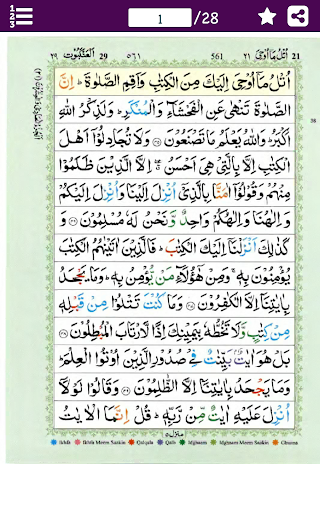 1 /28
21 اُتْلُ مَاۤ اُوْحِیَ ٢١ 561 ٥٦١ 29 اَلْعَنْكَبُوْت ٢٩
اُتْلُ مَاۤ اُوْحِیَ اِلَیْكَ مِنَ الْكِتٰبِ وَاَقِمِ الصَّلٰوةَ ؕ اِنَّ
الصَّلٰوةَ تَنْهٰی عَنِ الْفَحْشَآءِ وَالْمُنْكَرِ ؕ وَلَذِكْرُ اللّٰهِ
اَكْبَرُ ؕ وَاللّٰهُ یَعْلَمُ مَا تَصْنَعُوْنَ ۝ وَلَا تُجَادِلُوْۤا اَهْلَ
الْكِتٰبِ اِلَّا بِالَّتِیْ هِیَ اَحْسَنُ ۖ اِلَّا الَّذِیْنَ ظَلَمُوْا
مِنْهُمْ وَقُوْلُوْۤا اٰمَنَّا بِالَّذِیْۤ اُنْزِلَ اِلَیْنَا وَاُنْزِلَ اِلَیْكُمْ
وَاِلٰهُنَا وَاِلٰهُكُمْ وَاحِدٌ وَّنَحْنُ لَهٗ مُسْلِمُوْنَ ۝ وَ
كَذٰلِكَ اَنْزَلْنَاۤ اِلَیْكَ الْكِتٰبَ ؕ فَالَّذِیْنَ اٰتَیْنٰهُمُ الْكِتٰبَ
یُؤْمِنُوْنَ بِهٖ ۚ وَمِنْ هٰۤؤُلَآءِ مَنْ یُّؤْمِنُ بِهٖ ؕ وَمَا یَجْحَدُ
بِاٰیٰتِنَاۤ اِلَّا الْكٰفِرُوْنَ ۝ وَمَا كُنْتَ تَتْلُوْا مِنْ قَبْلِهٖ
مِنْ كِتٰبٍ وَّلَا تَخُطُّهٗ بِیَمِیْنِكَ اِذًا لَّارْتَابَ الْمُبْطِلُوْنَ ۝
بَلْ هُوَ اٰیٰتٌۢ بَیِّنٰتٌ فِیْ صُدُوْرِ الَّذِیْنَ اُوْتُوا الْعِلْمَ ؕ
وَمَا یَجْحَدُ بِاٰیٰتِنَاۤ اِلَّا الظّٰلِمُوْنَ ۝ وَقَالُوْا لَوْلَاۤ
اُنْزِلَ عَلَیْهِ اٰیٰتٌ مِّنْ رَّبِّهٖ ؕ قُلْ اِنَّمَا الْاٰیٰتُ
منزل ٥
Ikhfa Ikhfa Meem Saakin Qalqala Qalb Idghaam Idghaam Meem Saakin Ghunna